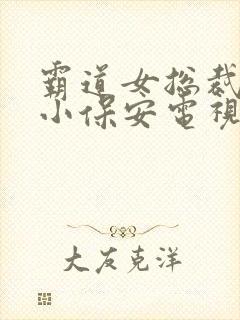 霸道女总裁
小保安電視
大友克洋